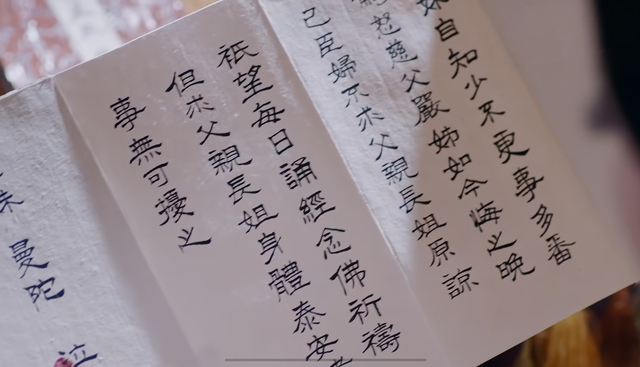 妹自知少不更事多番
怒慈父嚴姊如今悔之晚
己臣婦不求父親長姐原諒
祇望每日誦經念佛祈禱
但求父親長姐身體泰安
事無可擾之
妹 曼陀 泣